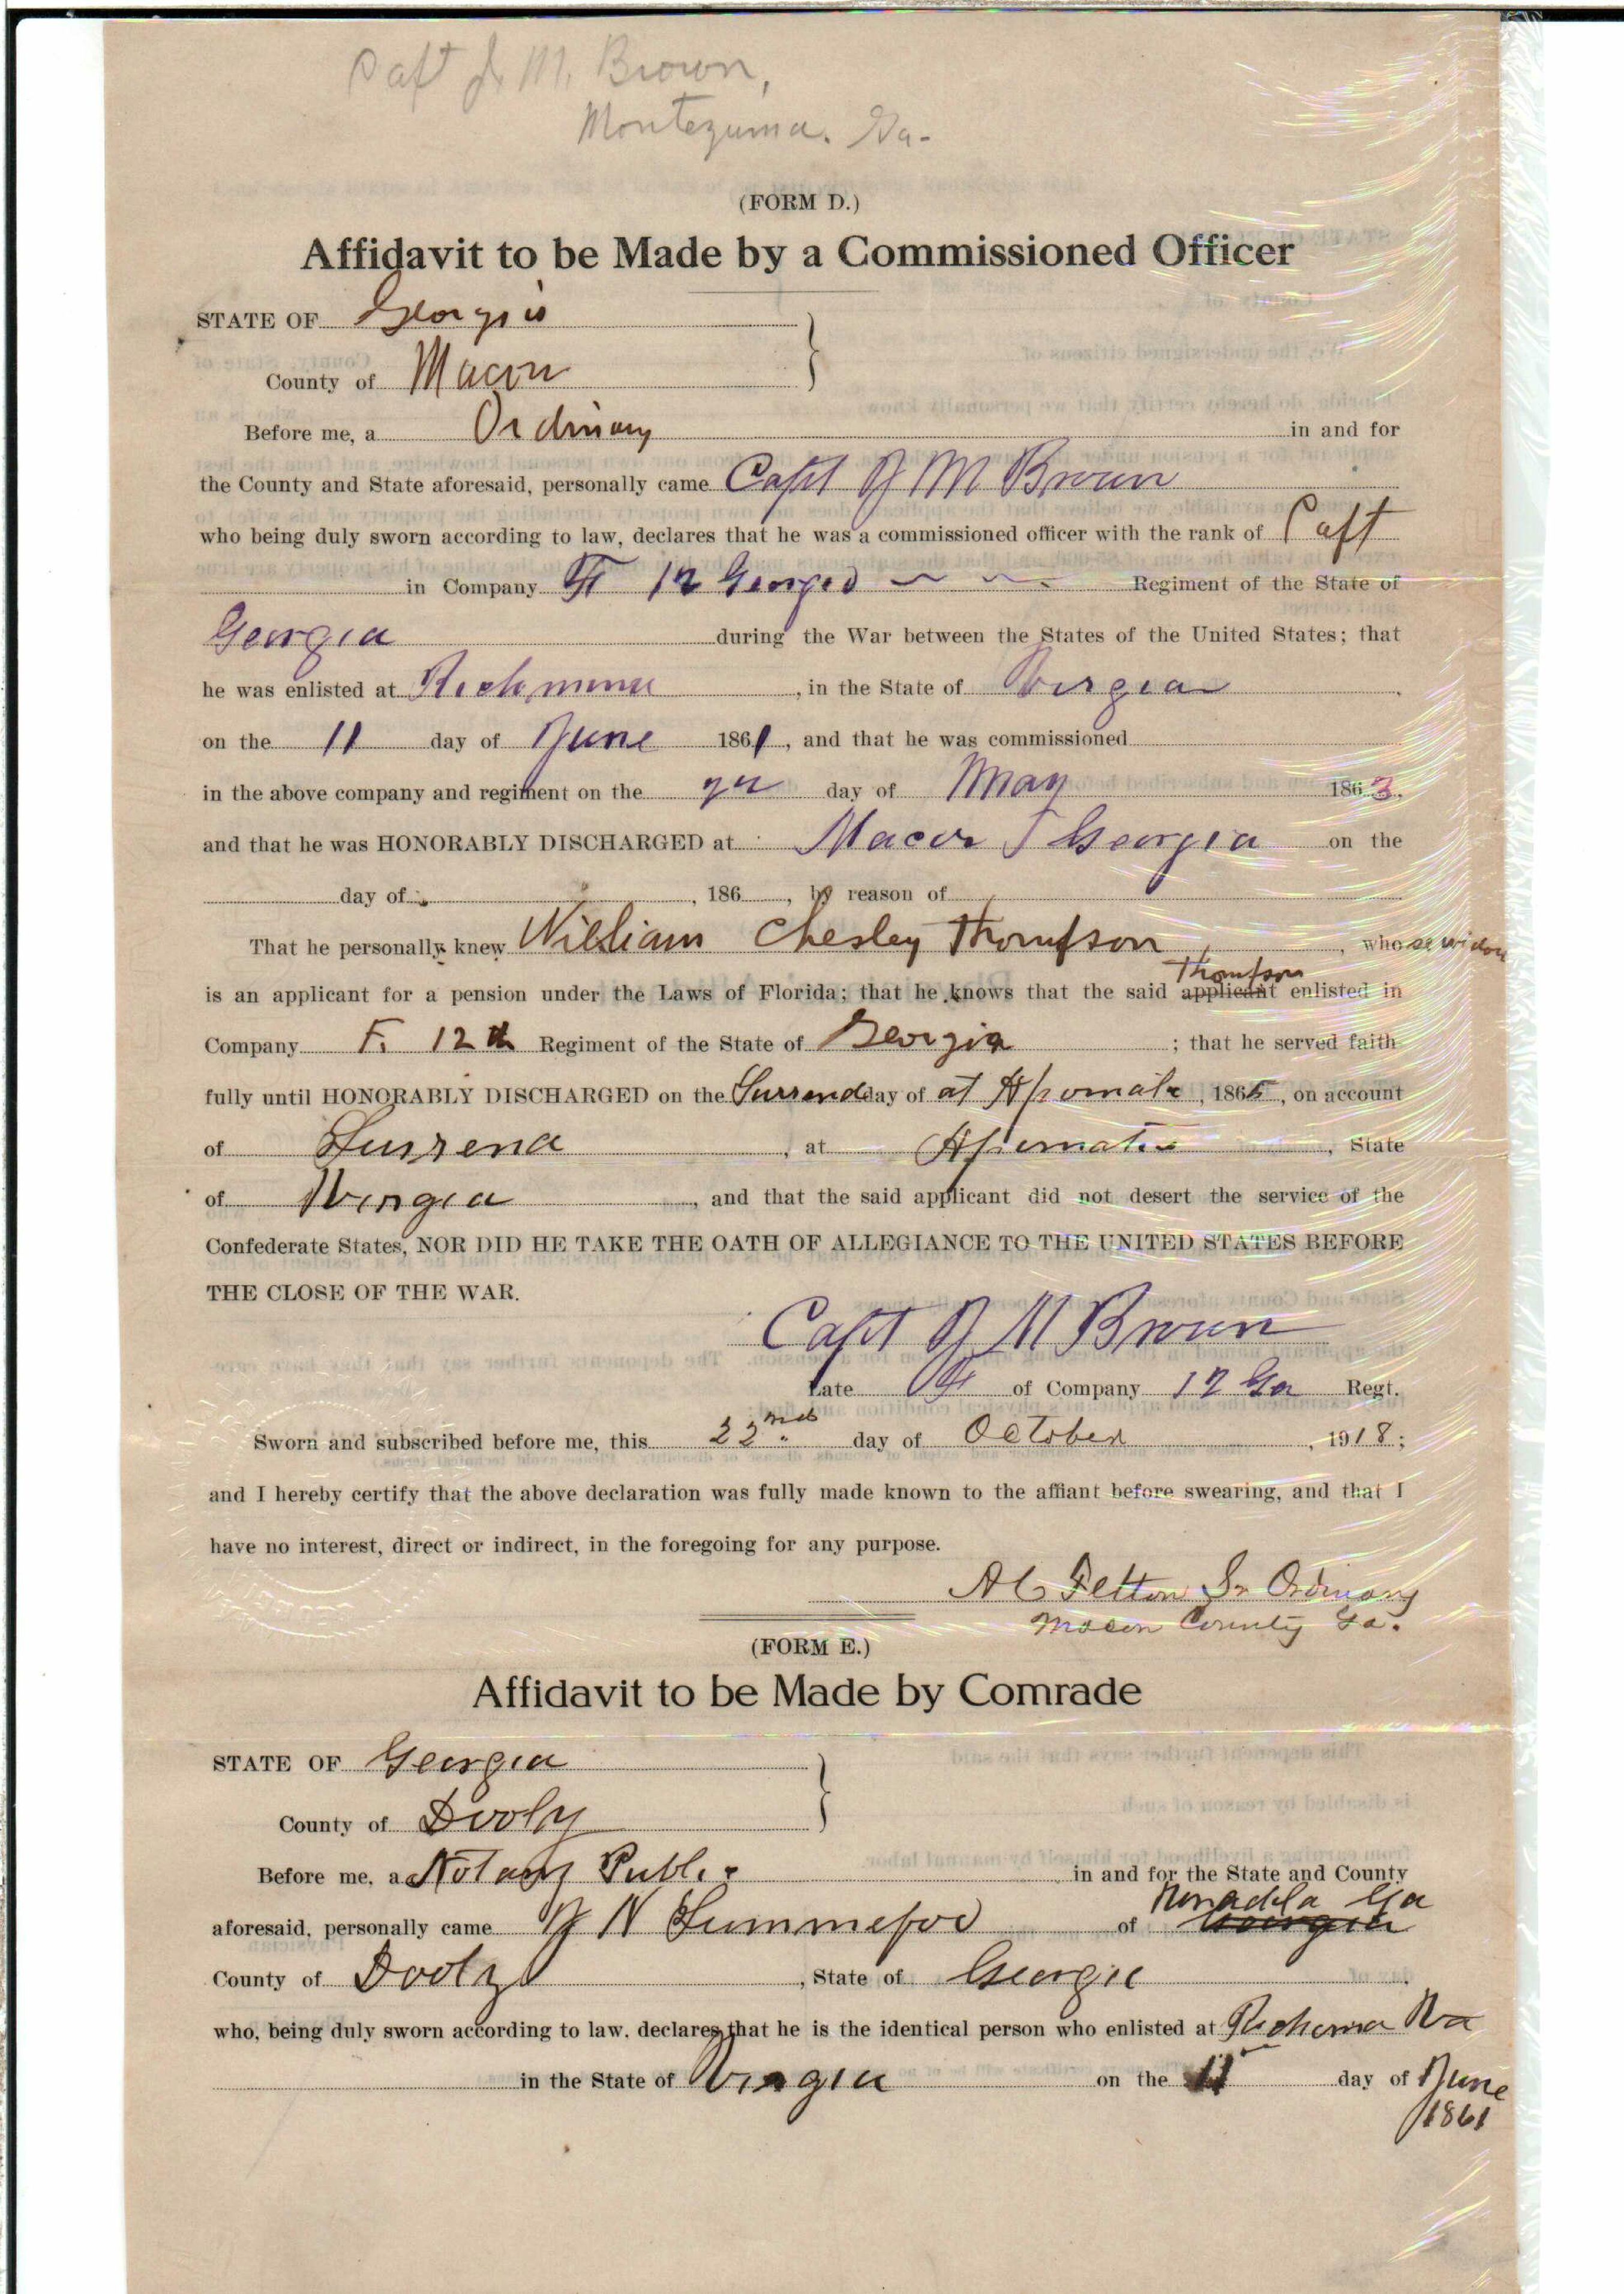 Capt J. M. Brown,
Montezuma. Ga.
(FORM D.)
Affidavit to be Made by a Commissioned Officer
STATE OF Georgia
County of Macon
Before me, a Ordinary in and for
the County and State aforesaid, personally came Capt J M Brown
who being duly sworn according to law, declares that he was a commissioned officer with the rank of Capt
in Company F 12 Georgia Regiment of the State of
Georgia during the War between the States of the United States; that
he was enlisted at Richmond, in the State of Virgia
on the 11 day of June 1861, and that he was commissioned
in the above company and regiment on the day of May 1863,
and that he was HONORABLY DISCHARGED at Macon Georgia on the
day of , 186 , by reason of
That he personally knew William Chesley Thompson, whose widow
Thompson
is an applicant for a pension under the Laws of Florida; that he knows that the said applicant enlisted in
Company F. 12th Regiment of the State of Georgia ; that he served faith
fully until HONORABLY DISCHARGED on the Surrend day of at Apomatx, 1865, on account
of Surrend, at Apomatx, State
of Virgia, and that the said applicant did not desert the service of the
Confederate States, NOR DID HE TAKE THE OATH OF ALLEGIANCE TO THE UNITED STATES BEFORE
THE CLOSE OF THE WAR.
Capt J M Brown
Late F of Company 12 Ga Regt.
Sworn and subscribed before me, this 22nd day of October, 1918;
and I hereby certify that the above declaration was fully made known to the affiant before swearing, and that I
have no interest, direct or indirect, in the foregoing for any purpose.
A C Felton Sr Ordinary
Macon County Ga.
(FORM E.)
Affidavit to be Made by Comrade
STATE OF Georgia
County of Dooly
Before me, a Notary Public in and for the State and County
Unadilla Ga
aforesaid, personally came J N Summeford of Georgia
County of Dooly, State of Georgia
who, being duly sworn according to law, declares that he is the identical person who enlisted at Richmon Va
in the State of Virgia on the 11 day of June
1861